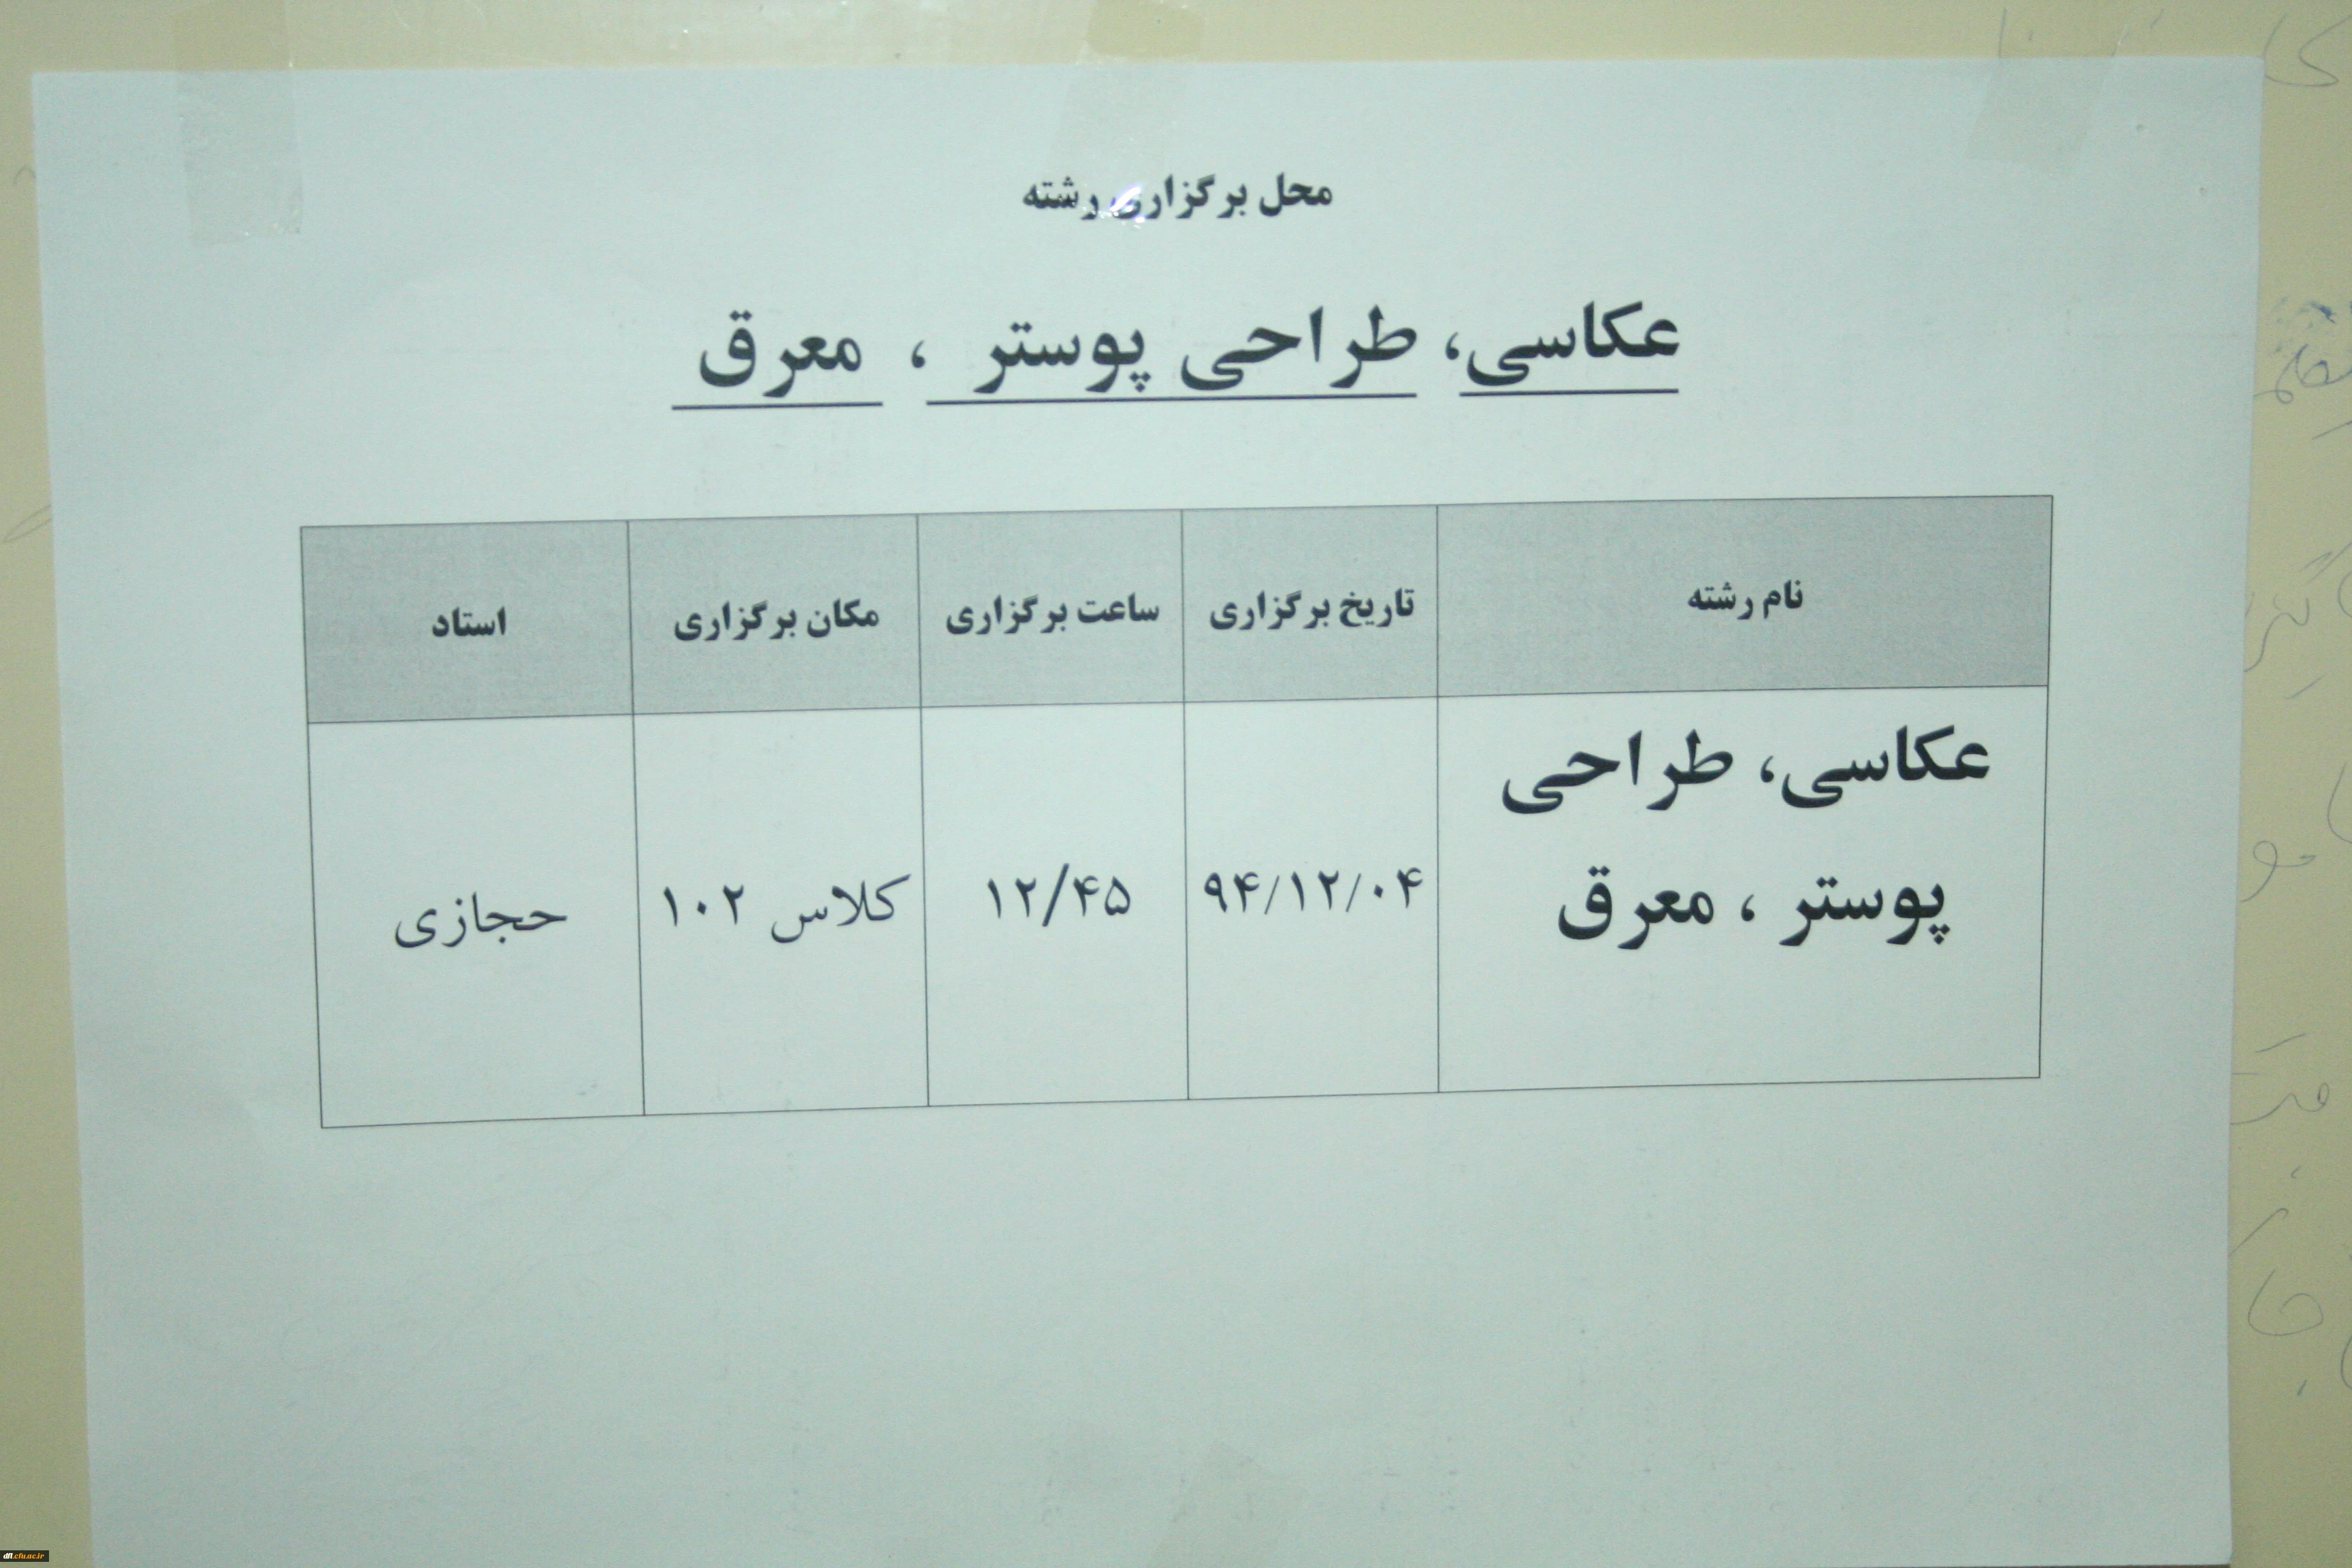 محل برگزاری رشته
عکاسی، طراحی پوستر ، معرق
نام رشته
تاریخ برگزاری
ساعت برگزاری
مکان برگزاری
استاد
عکاسی، طراحی
پوستر ، معرق
۹۴/۱۲/۰۴
۱۲/۴۵
کلاس ۱۰۲
حجازی
dfl.cfu.ac.ir